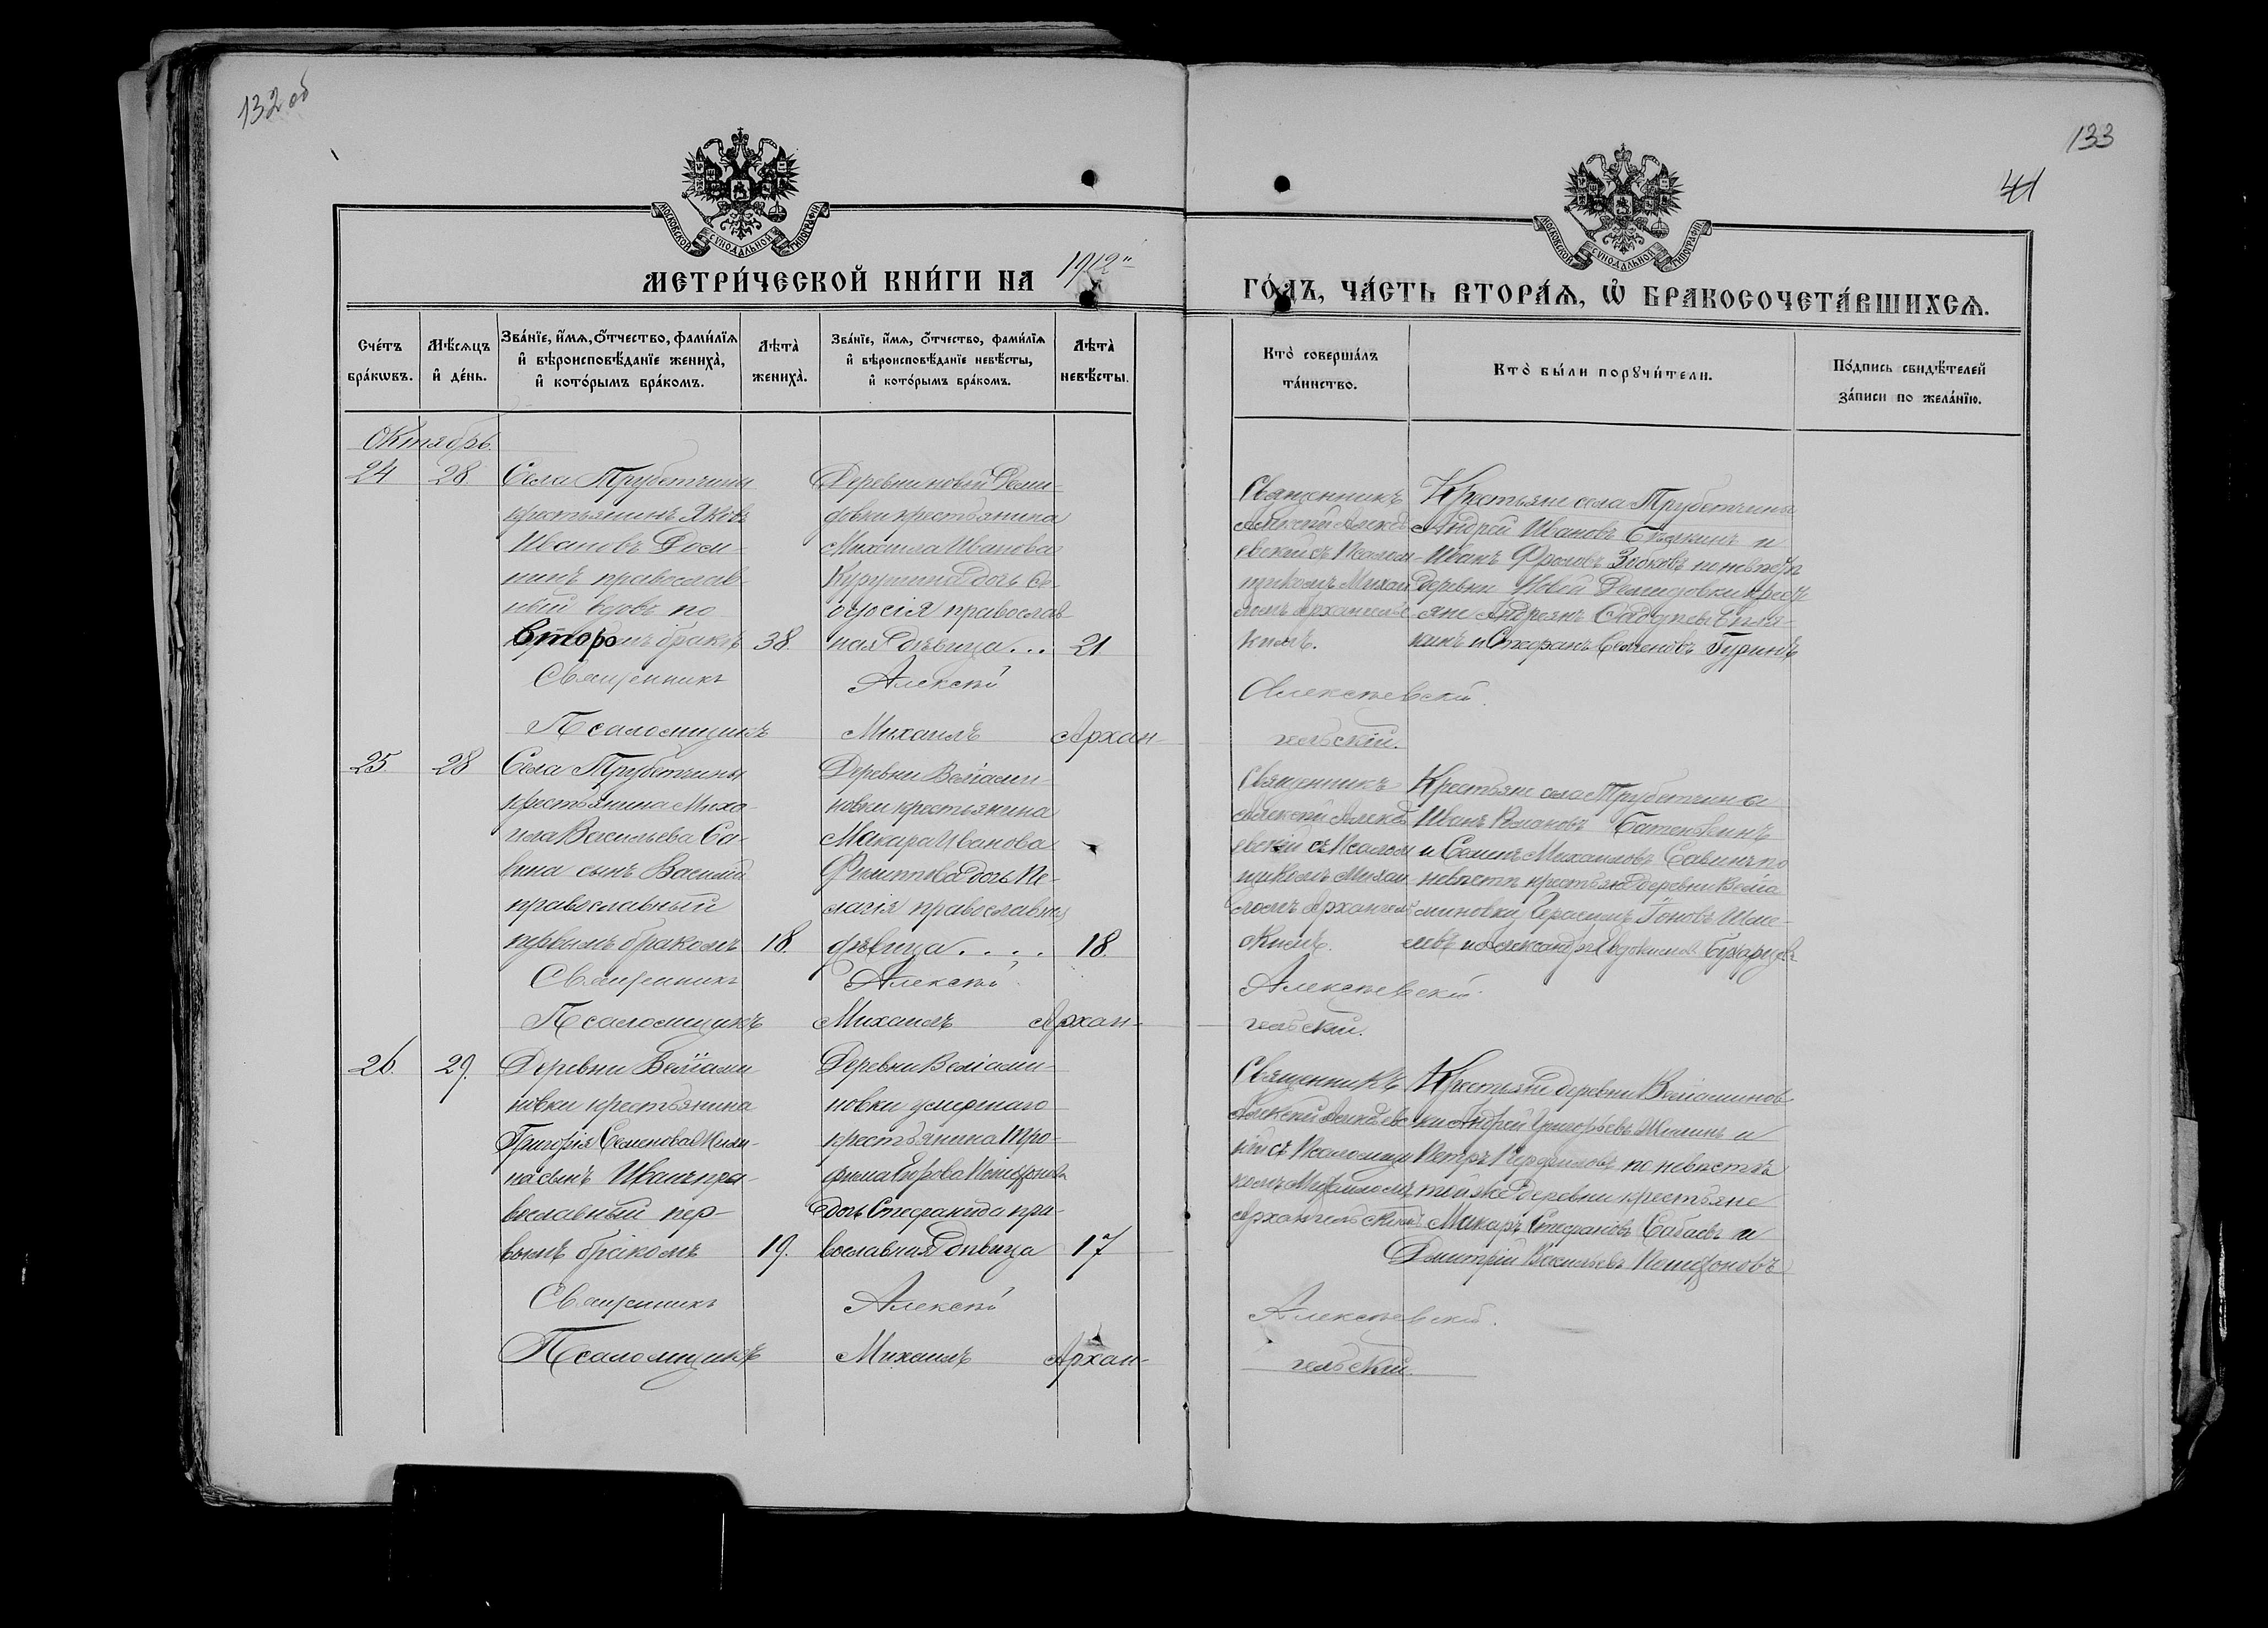 132 об
133
41
МОСКОВСКОЙ СѴНОДАЛЬНОЙ ТИПОГРАФІИ
МОСКОВСКОЙ СѴНОДАЛЬНОЙ ТИПОГРАФІИ
МЕТРИ́ЧЕСКОЙ КНИ́ГИ НА 1912
ГО́ДЪ, ЧА́СТЬ ВТОРА́Ѧ, Ѽ БРАКОСОЧЕТА́ВШИХСѦ.
Сче́тъ бра́кѡвъ.
Мѣ́сѧцъ и҆ де́нь.
Зва́нїе, и҆́мѧ, ѻ҆́тчество, фамі́лїѧ
и҆ вѣроисповѣ́данїе жениха̀,
и҆ кото́рымъ бра́комъ.
Лѣта̀ жениха̀.
Зва́нїе, и҆́мѧ, ѻ҆́тчество, фамі́лїѧ
и҆ вѣроисповѣ́данїе невѣ́сты,
и҆ кото́рымъ бра́комъ.
Лѣта̀ невѣ́сты.
Кто̀ соверша́лъ
та́инство.
Кто̀ бы́ли порꙋчи́тели.
По́дпись свидѣ́телей
за́писи по жела́нїю.
Октябрь.
24
28
Села Трубетчины
крестьянинъ Яковъ
Ивановъ
нинъ православ-
ный вдовъ по
второмъ бракѣ
38.
Деревни новой Деми-
довки крестьянина
Михаила Иванова
дочь Ѳе-
одосія православ
ная дѣвица...
21
Священникъ
Алексѣй Алексѣ
евскій съ Псалом-
щикомъ Михаи
ломъ Архангельс
кимъ.
Крестьяне села Трубетчины
Андрей Ивановъ и
Иванъ Фроловъ по невѣстѣ
деревни Новой Демидовки крестъ
яне Андреянъ
кинъ и Стефанъ Семеновъ Гуринъ
Священникъ Алексѣй Алексѣевскій.
Псаломщикъ Михаилъ Архан-
гельскій.
25.
28
Села Трубетчины
крестьянина Миха-
ила Васильева Са-
вина сынъ Василій
православный
первымъ бракомъ
18.
Деревни Веліами-
новки крестьянина
Макара Иванова
Филиппова дочь Пе-
лагія православная
дѣвица....
18.
Священникъ
Алексѣй Алексѣ
евскій съ Псалом
щикомъ Михаи
ломъ Архангельс
кимъ.
Крестьяне села Трубетчина
Иванъ Романовъ
и Семенъ Михаиловъ Савинъ по
невѣстѣ крестьяне деревни Веліа
миновки Герасимъ
и Александръ Евдокимовъ
Священникъ Алексѣй Алексѣевскій.
Псаломщикъ Михаилъ Архан-
гельскій.
26.
29.
Деревни Веліами
новки крестьянина
Григорія Семенова
на сынъ Иванъ пра-
вославный пер-
вымъ бракомъ
19.
Деревни Веліами-
новки умершаго
крестьянина Тро-
фима
дочь Стефанида пра-
вославная дѣвица
17
Священникъ
Алексѣй Алексѣевс
кій съ Псаломщи
комъ Михаиломъ
Архангельскимъ
Крестьяне деревни Веліаминов
ки Андрей Григорьевъ и
Петръ по невѣстѣ
той же деревни крестьяне
Макаръ Стефановъ Сабаевъ и
Дмитрій Васильевъ
Священникъ Алексѣй Алексѣевскій.
Псаломщикъ Михаилъ Архан-
гельскій.